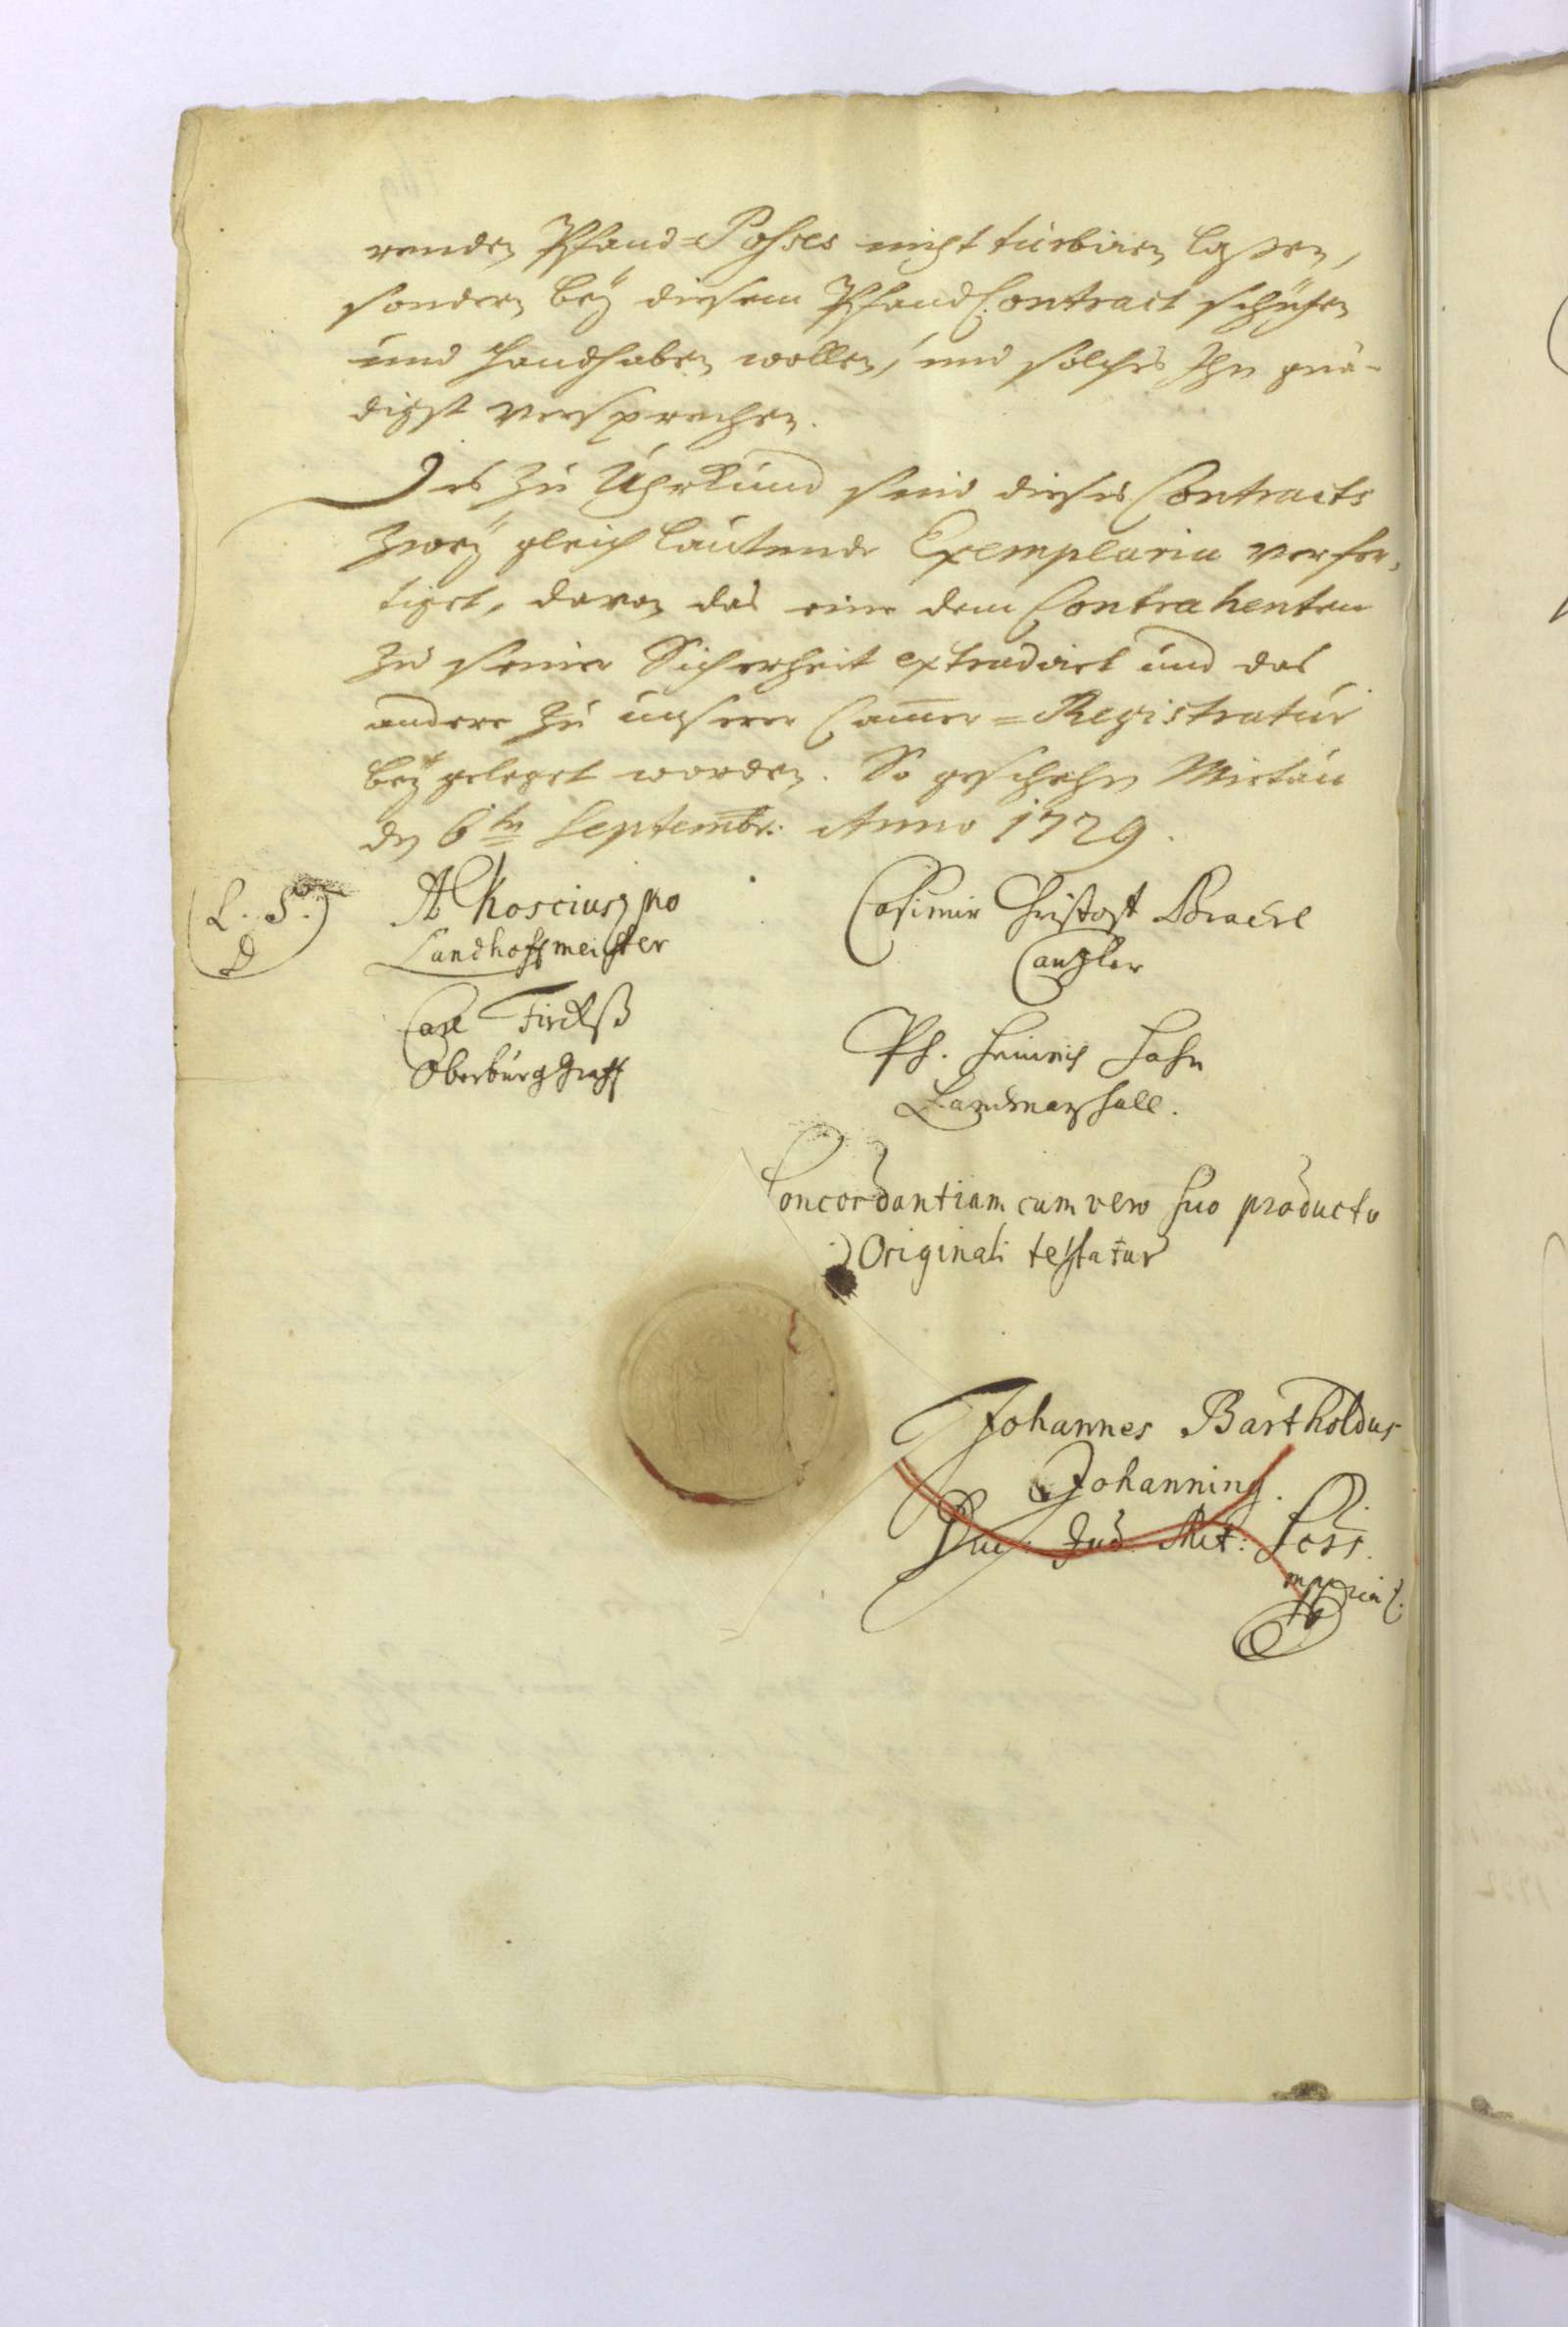 renden Pfand-Posses nicht turbiren laßen,
sondern beÿ diesem Pfand Contract schützen
und handhaben wollen, und solches Ihm gnä-
digst versprechen.
Deß zu Uhrkund seind dieses Contracts
zweÿ gleich lautende Exemplaria verfer-
tiget, davon das eine dem Contrahenten
zu seiner Sicherheit extradirt und das
andere zu unserer Cam̅er-Registratur
beÿ geleget worden. So geschehen Mietau
den 6ten Septembr: Anno 1729.
(L. S.)
D
A Kosciuszko
Landhoffmeister
Casimir Christoff Brackel
Cantzler
Carl Fircks
Oberburggraff
Ph. Heinrich Hahn
Landmarschall.
Concordantiam cum vero suo producto
Originali testatur
Johannes Bartholdus
Johanning.
Jud: Secr.
mppria